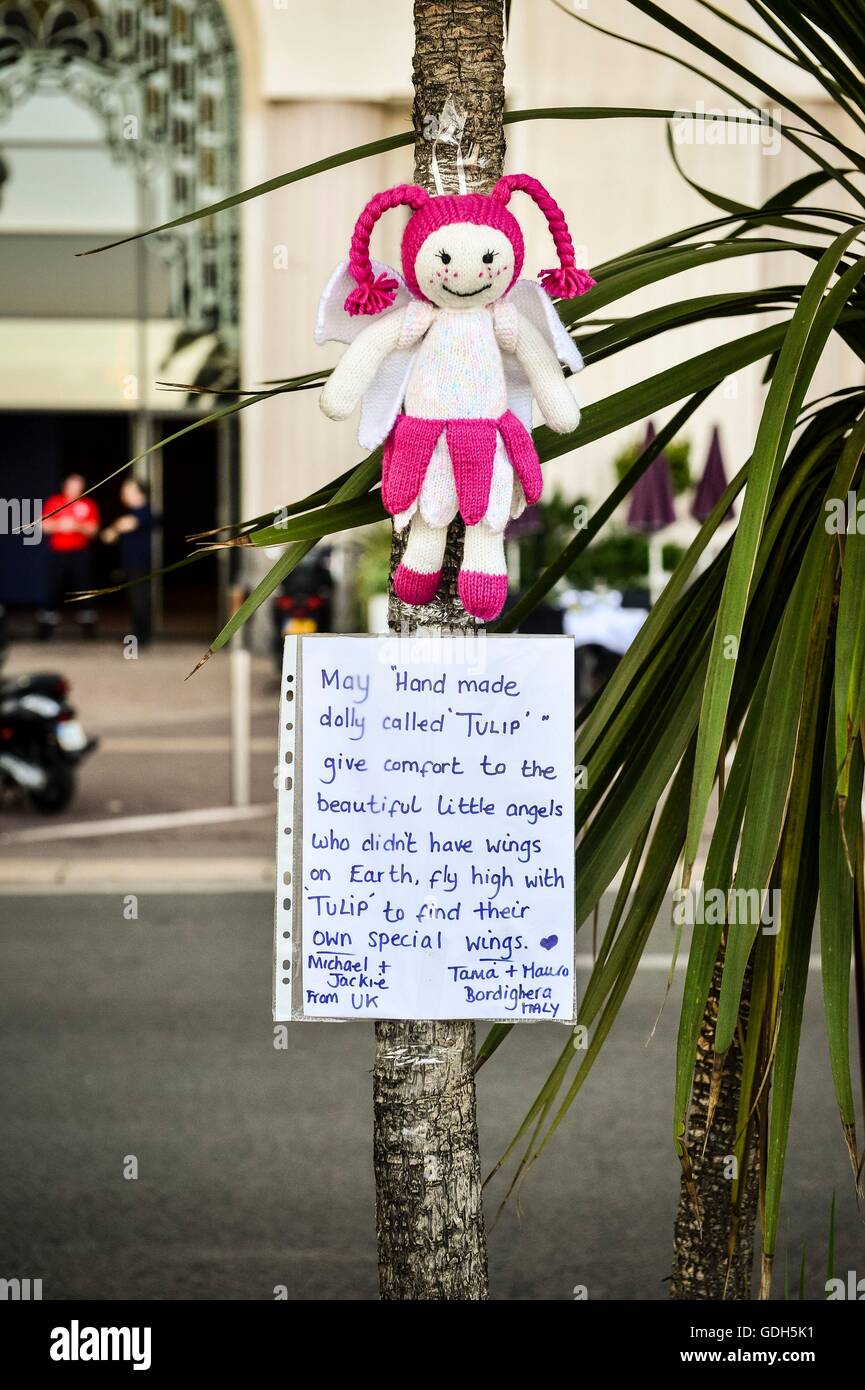 May "Hand made
dolly called 'TULIP' "
give comfort to the
beautiful little angels
who didn't have wings
on Earth, fly high with
'TULIP' to find their
own special wings. ♥
Michael + Jackie
From UK
Tamá + Mauro
Bordighera
ITALY
alamy
alamy stock photo
GDH5K1
www.alamy.com